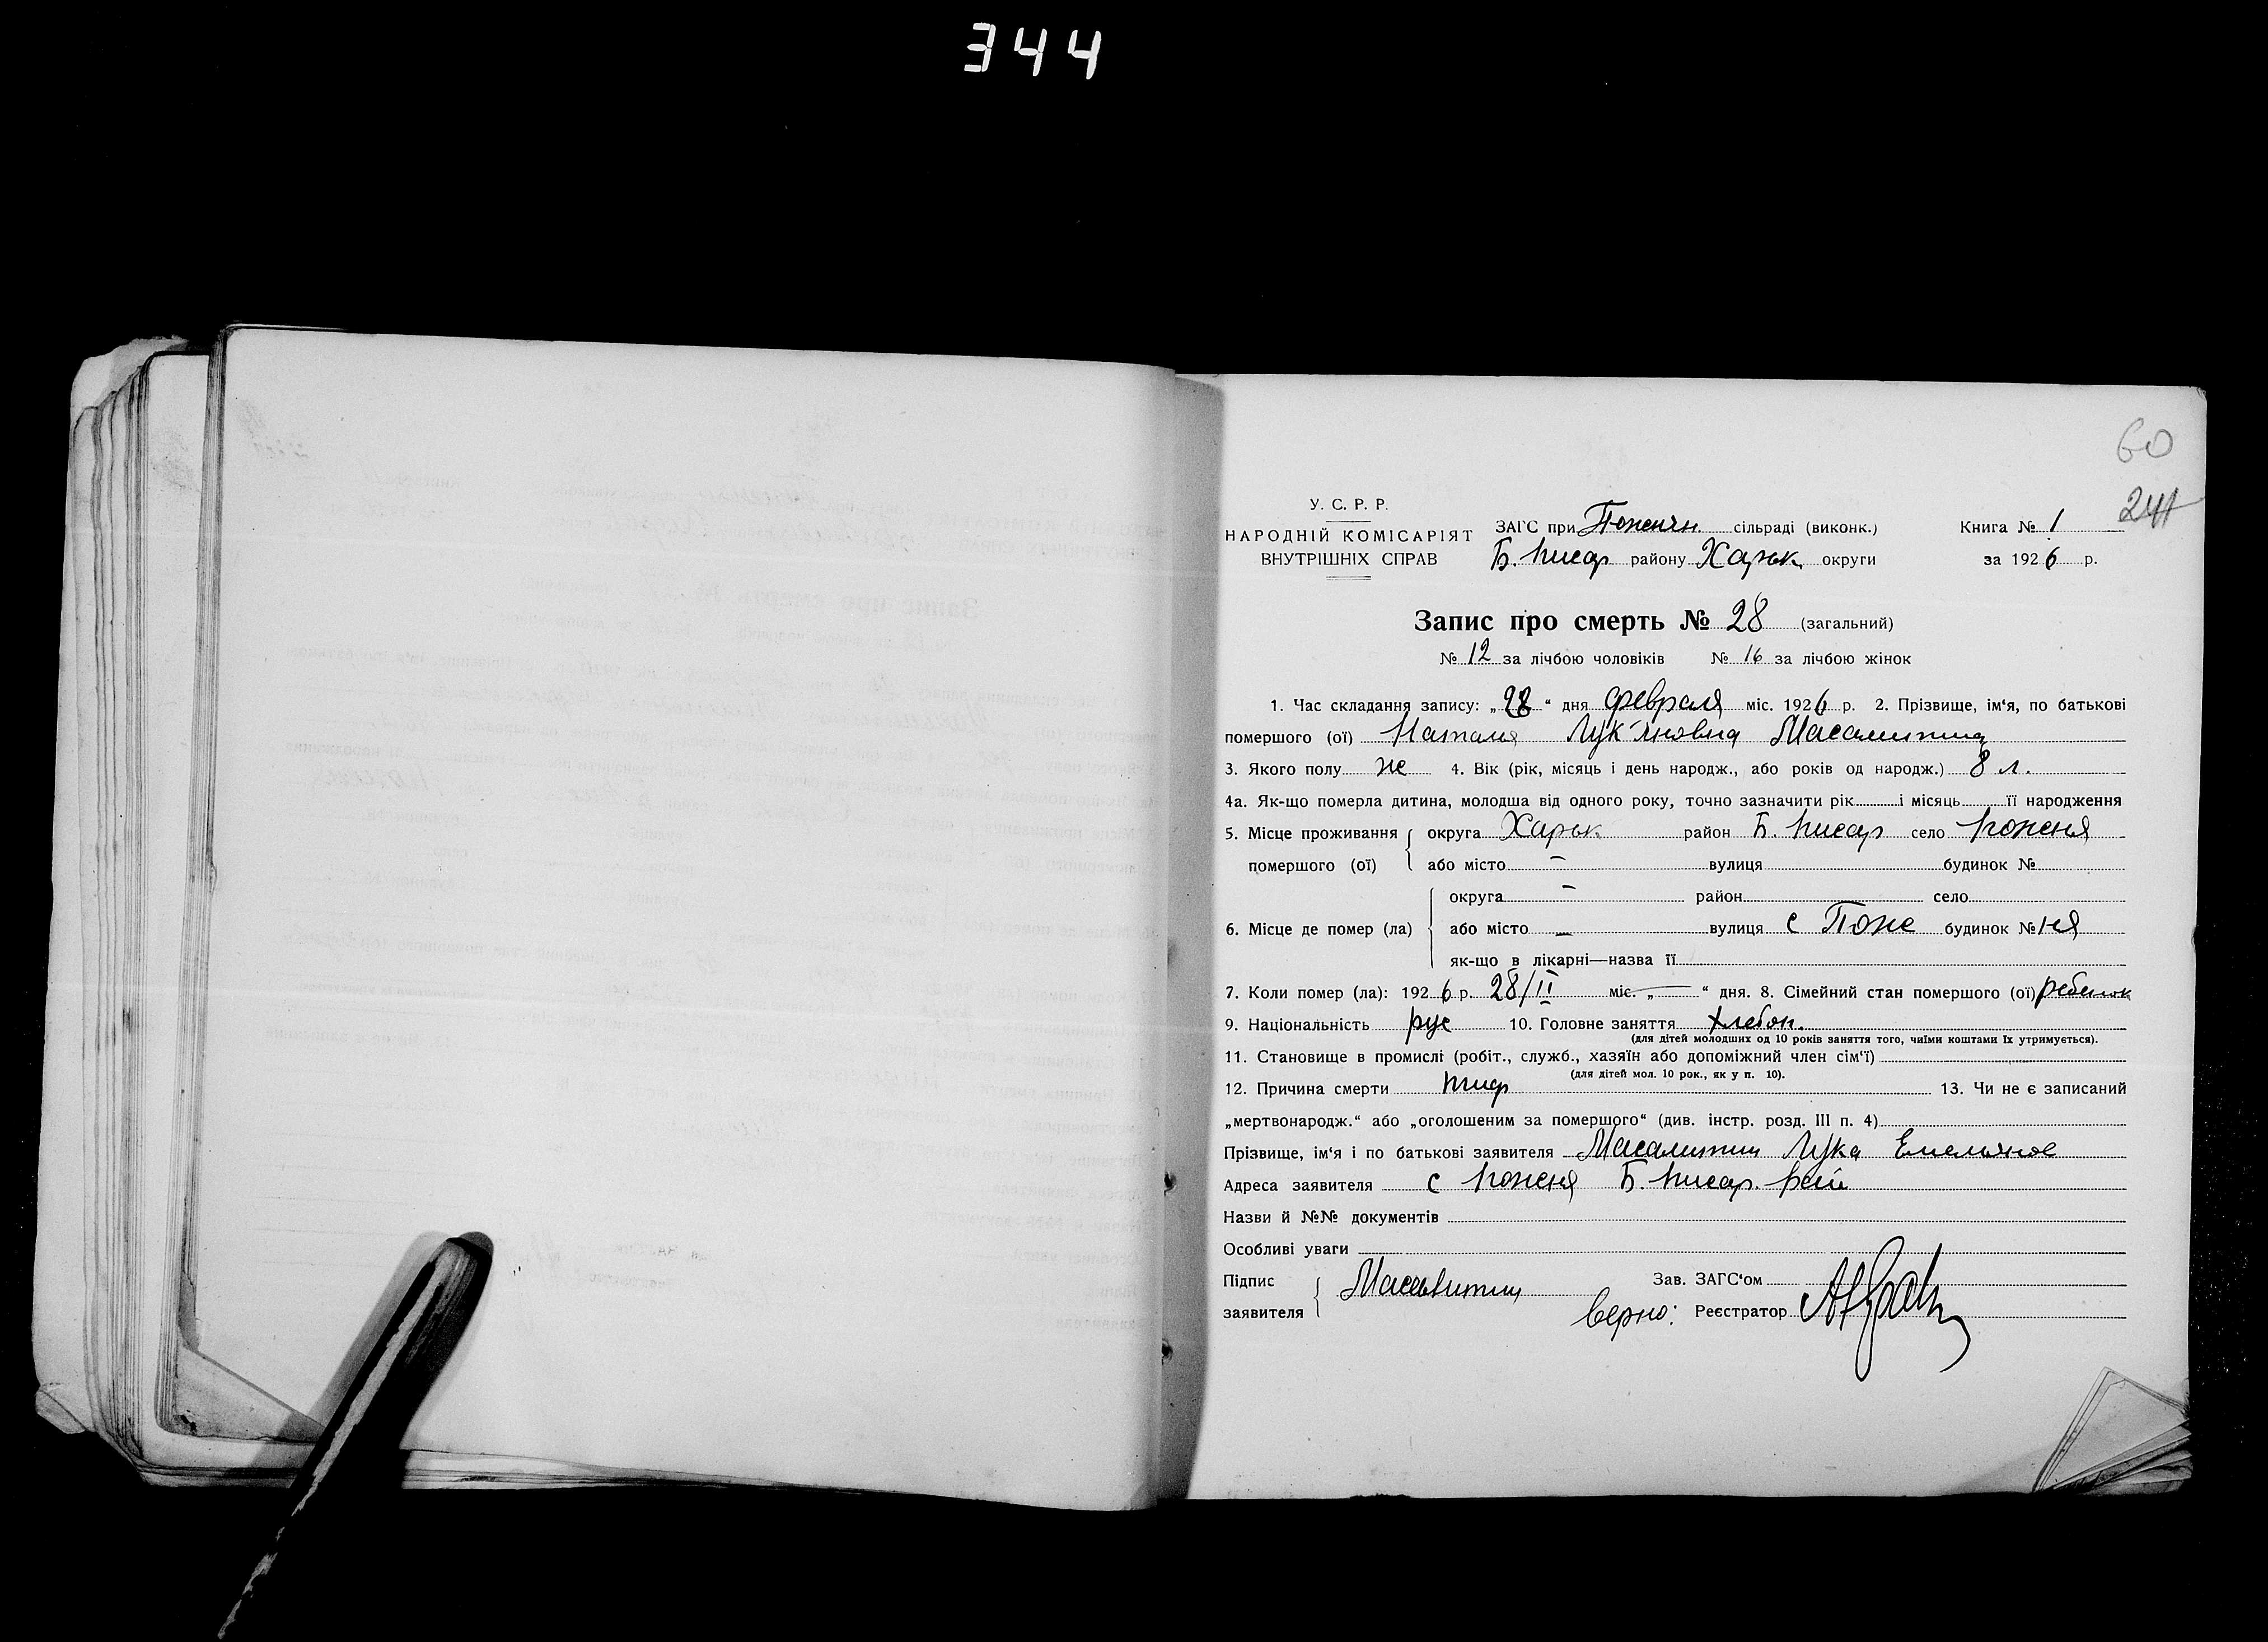 344
60
241
У. С. Р. Р.
НАРОДНІЙ КОМІСАРІЯТ
ВНУТРІШНІХ СПРАВ
ЗАГС при Поженян. сільраді (виконк.)
Б. Писар району Харьк округи
Книга № 1
за 1926 р.
Запис про смерть № 28 (загальний)
№ 12 за лічбою чоловіків № 16 за лічбою жінок
1. Час складання запису: „28“ дня февраля міс. 1926 р. 2. Прізвище, ім‘я, по батькові
помершого (ої) Наталя Лук‘яновна Масалитина
3. Якого полу ж 4. Вік (рік, місяць і день народж., або років од народж.) 8 л.
4а. Як-що померла дитина, молодша від одного року, точно зазначити рік і місяць її народження
5. Місце проживання помершого (ої) округа Харьк район Б. Писар село Поженя
або місто — вулиця будинок №
6. Місце де помер (ла) округа — район село
або місто — вулиця с Поже будинок № ня
як-що в лікарні—назва її
7. Коли помер (ла): 1926 р. 28/II міс. „—“ дня. 8. Сімейний стан помершого (ої) ребенок
9. Національність рус 10. Головне заняття хлебоп.
(для дітей молодших од 10 років заняття того, чиїми коштами їх утримується).
11. Становище в промислі (робіт., служб., хазяїн або допоміжний член сім‘ї)
(для дітей мол. 10 рок., як у п. 10).
12. Причина смерти тиф 13. Чи не є записаний
„мертвонародж.“ або „оголошеним за помершого“ (див. інстр. розд. III п. 4)
Прізвище, ім‘я і по батькові заявителя Масалитин Лука Емельянов
Адреса заявителя с Поженя Б. Писар. рай
Назви й №№ документів
Особливі уваги
Підпис заявителя Масалитин
Зав. ЗАГС‘ом
верно: Реєстратор